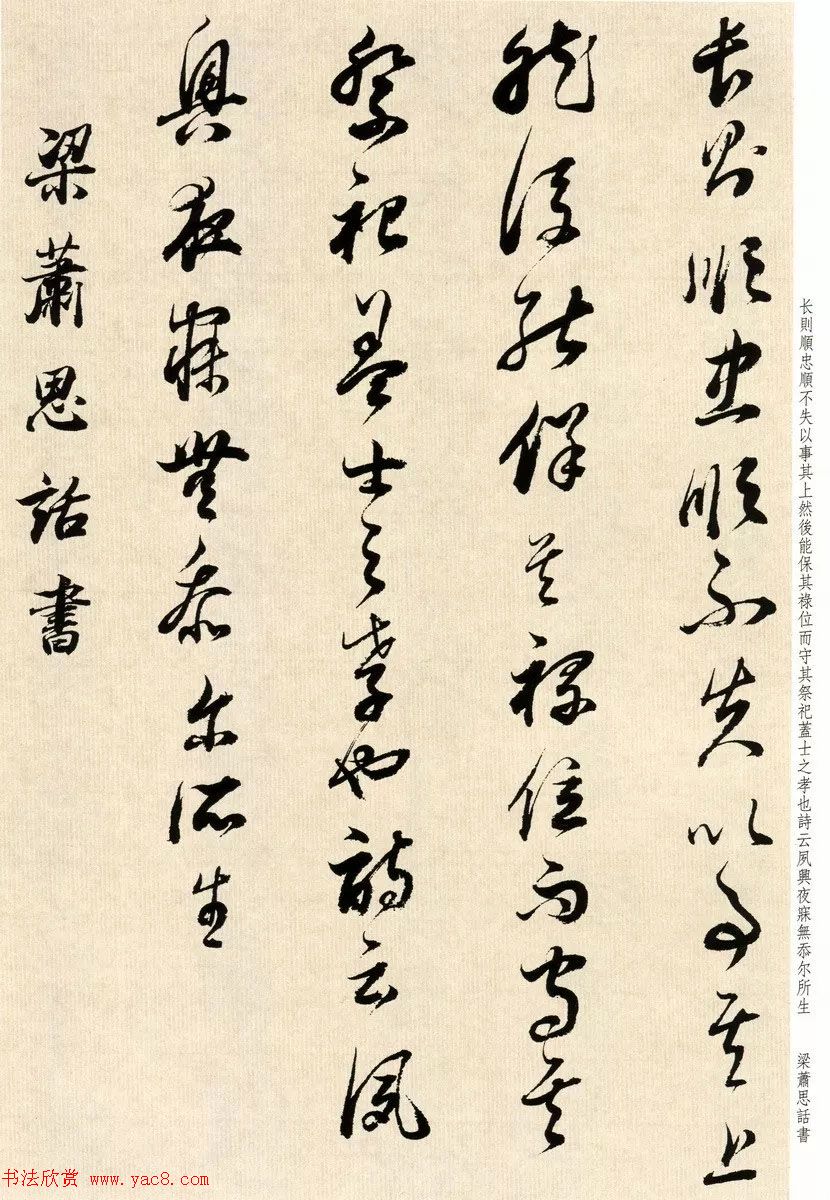 长則順忠順不失以事其上
然後能保其禄位而守其
祭祀蓋士之孝也詩云夙
興夜寐無忝尔所生
梁蕭思話書
长則順忠順不失以事其上然後能保其祿位而守其祭祀蓋士之孝也詩云夙興夜寐無忝尔所生 梁蕭思話書
书法欣赏 www.yac8.com